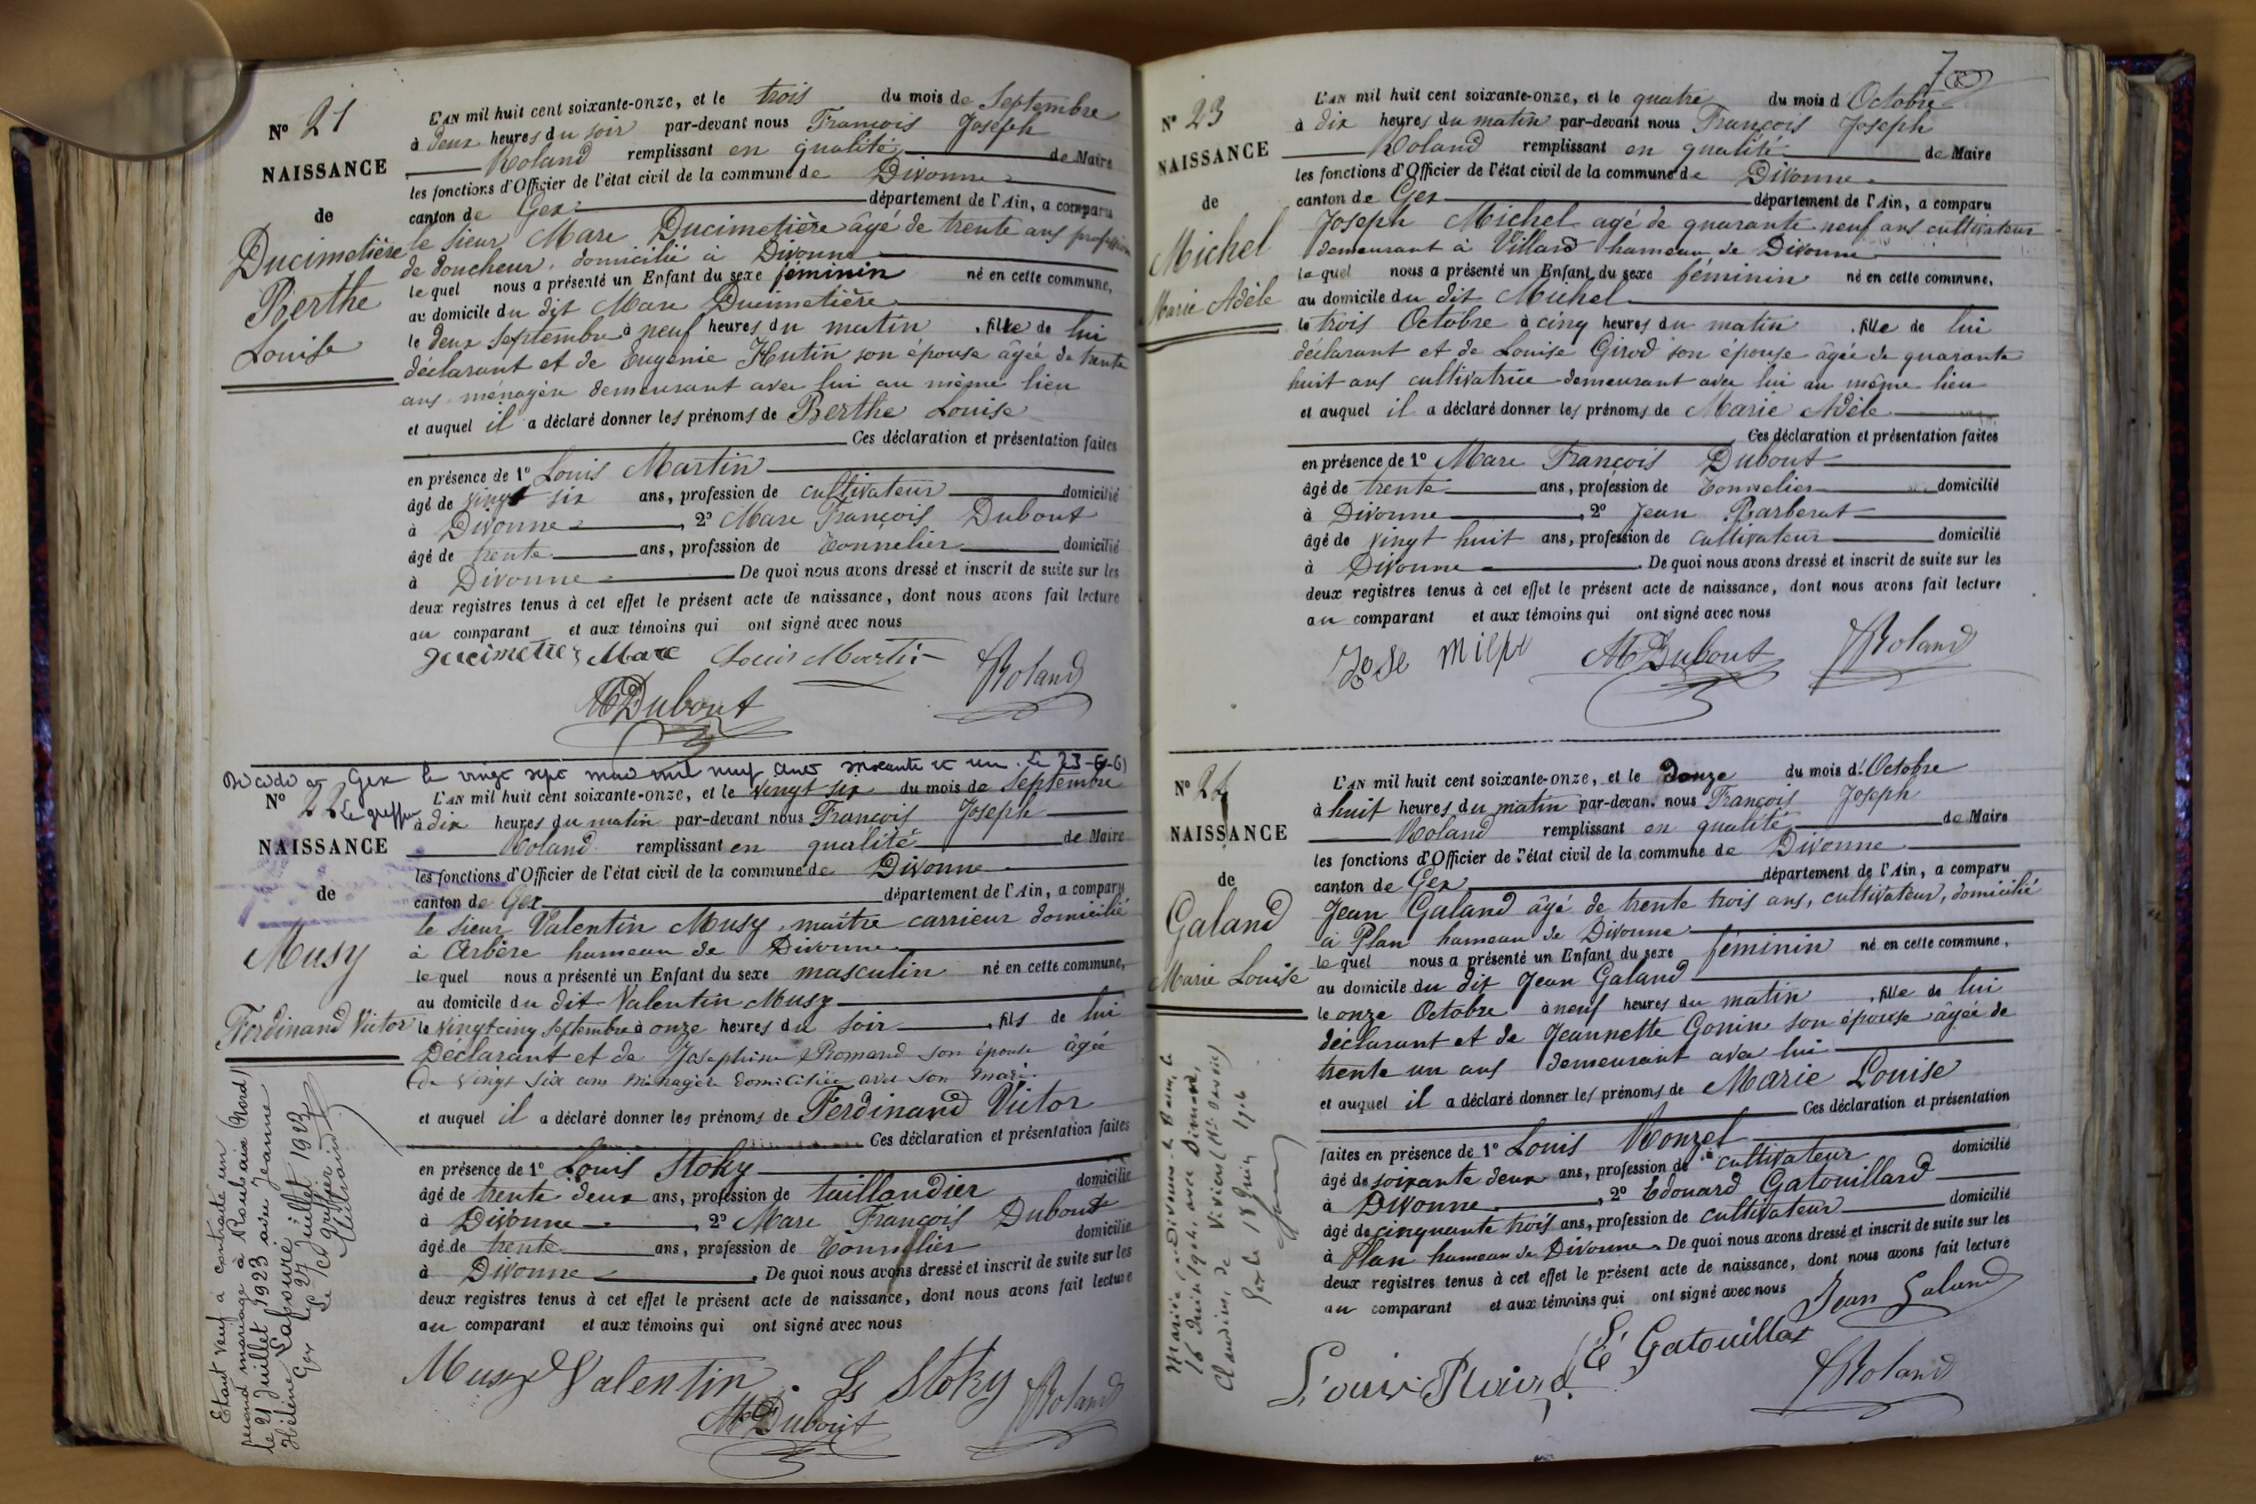 N° 21
NAISSANCE
de
Ducimetière
Berthe
Louise
L'AN mil huit cent soixante-onze, et le trois du mois de Septembre
à deux heures du soir par-devant nous François Joseph
Roland remplissant en qualité de Maire
les fonctions d'Officier de l'état civil de la commune de Divonne
canton de Gex département de l'Ain, a comparu
le sieur Marc Ducimetière âgé de trente ans profession
de doucheur, domicilié à Divonne
lequel nous a présenté un Enfant du sexe féminin né en cette commune,
au domicile du dit Marc Ducimetière
le deux Septembre à neuf heures du matin, fille de lui
déclarant et de Eugénie Hutin son épouse âgée de trente
ans ménagère demeurant avec lui au même lieu
et auquel il a déclaré donner les prénoms de Berthe Louise
Ces déclaration et présentation faites
en présence de 1° Louis Martin
âgé de vingt six ans, profession de cultivateur domicilié
à Divonne, 2° Marc François Dubout
âgé de trente ans, profession de Tonnelier domicilié
à Divonne De quoi nous avons dressé et inscrit de suite sur les
deux registres tenus à cet effet le présent acte de naissance, dont nous avons fait lecture
au comparant et aux témoins qui ont signé avec nous
Marc Louis Martin JRoland
MDubout
Décédé à Gex le vingt sept mai mil neuf cent soixante et un. Le 23-6-61
Le greffier
N° 22
NAISSANCE
de
Musy
Ferdinand Victor
L'AN mil huit cent soixante-onze, et le vingt six du mois de Septembre
à dix heures du matin par-devant nous François Joseph
Roland remplissant en qualité de Maire
les fonctions d'Officier de l'état civil de la commune de Divonne
canton de Gex département de l'Ain, a comparu
le sieur Valentin Musy, maître carrieur domicilié
à Arbère hameau de Divonne
lequel nous a présenté un Enfant du sexe masculin né en cette commune,
au domicile du dit Valentin Musy
le vingt cinq Septembre à onze heures du soir, fils de lui
Déclarant et de Josephine Romand son épouse âgée
de vingt six ans ménagère domiciliée avec son mari.
et auquel il a déclaré donner les prénoms de Ferdinand Victor
Ces déclaration et présentation faites
en présence de 1° Louis Stoky
âgé de trente deux ans, profession de taillandier domicilié
à Divonne, 2° Marc François Dubout
âgé de trente ans, profession de Tonnelier domicilié
à Divonne. De quoi nous avons dressé et inscrit de suite sur les
deux registres tenus à cet effet le présent acte de naissance, dont nous avons fait lecture
au comparant et aux témoins qui ont signé avec nous
Musy Valentin Ls Stoky JRoland
MDubout
Etant veuf a contracté un
second mariage à Roubaix (Nord)
le 21 Juillet 1923 avec Jeanne
Hélène Lapouré
Gex le 27 Juillet 1923
Le greffier
7
N° 23
NAISSANCE
de
Michel
Marie Adèle
L'AN mil huit cent soixante-onze, et le quatre du mois d'Octobre
à dix heures du matin par-devant nous François Joseph
Roland remplissant en qualité de Maire
les fonctions d'Officier de l'état civil de la commune de Divonne
canton de Gex département de l'Ain, a comparu
Joseph Michel agé de quarante neuf ans cultivateur
demeurant à Villard hameau de Divonne
lequel nous a présenté un Enfant du sexe féminin né en cette commune,
au domicile du dit Michel
le trois Octobre à cinq heures du matin, fille de lui
déclarant et de Louise Girod son épouse âgée de quarante
huit ans cultivatrice demeurant avec lui au même lieu
et auquel il a déclaré donner les prénoms de Marie Adèle
Ces déclaration et présentation faites
en présence de 1° Marc François Dubout
âgé de trente ans, profession de Tonnelier domicilié
à Divonne, 2° Jean Barberat
âgé de vingt huit ans, profession de cultivateur domicilié
à Divonne. De quoi nous avons dressé et inscrit de suite sur les
deux registres tenus à cet effet le présent acte de naissance, dont nous avons fait lecture
au comparant et aux témoins qui ont signé avec nous
MDubout JRoland
N° 24
NAISSANCE
de
Galand
Marie Louise
L'AN mil huit cent soixante-onze, et le Douze du mois d'Octobre
à huit heures du matin par-devant nous François Joseph
Roland remplissant en qualité de Maire
les fonctions d'Officier de l'état civil de la commune de Divonne
canton de Gex département de l'Ain, a comparu
Jean Galand âgé de trente trois ans, cultivateur, domicilié
à Plan hameau de Divonne
lequel nous a présenté un Enfant du sexe féminin né en cette commune,
au domicile du dit Jean Galand
le onze Octobre à neuf heures du matin, fille de lui
déclarant et de Jeannette Gonin son épouse âgée de
trente un ans demeurant avec lui
et auquel il a déclaré donner les prénoms de Marie Louise
Ces déclaration et présentation
faites en présence de 1° Louis Ronzel
âgé de soixante deux ans, profession de cultivateur domicilié
à Divonne, 2° Edouard Gatouillard
âgé de cinquante trois ans, profession de cultivateur domicilié
à Plan hameau de Divonne. De quoi nous avons dressé et inscrit de suite sur les
deux registres tenus à cet effet le présent acte de naissance, dont nous avons fait lecture
au comparant et aux témoins qui ont signé avec nous Jean Galand
E Gatouillat
Louis JRoland
Mariée à Divonne les Bains, le
16 Juin 1926, avec
Claudien, de Viviers
Gex le 18 Juin 1926